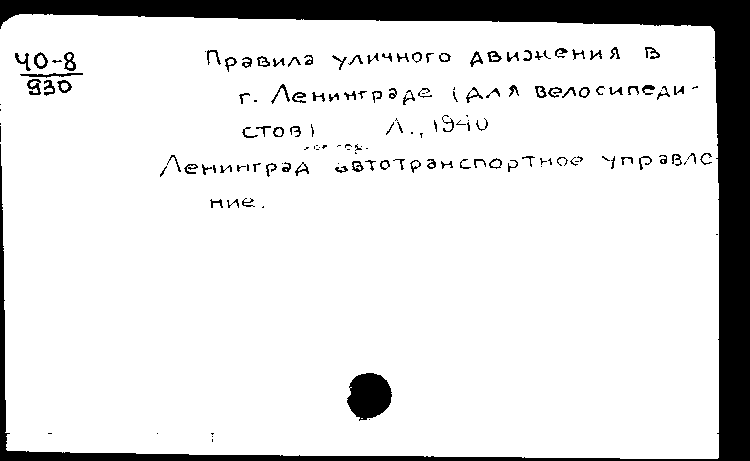 40-8
930
Правила уличного движения в
г. Ленинграде (для велосипеди-
стов) Л., 1940
Ленинград автотранспортное управле
ние.